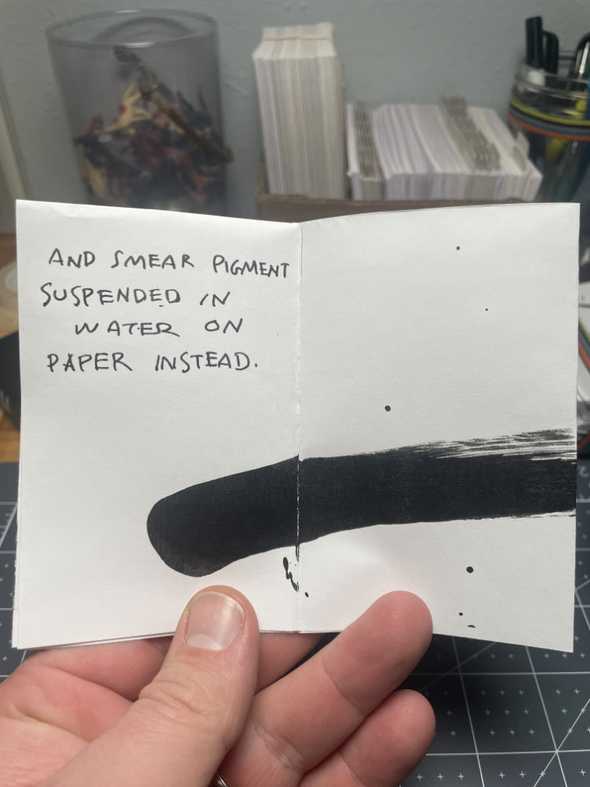 AND SMEAR PIGMENT
SUSPENDED IN
WATER ON
PAPER INSTEAD.